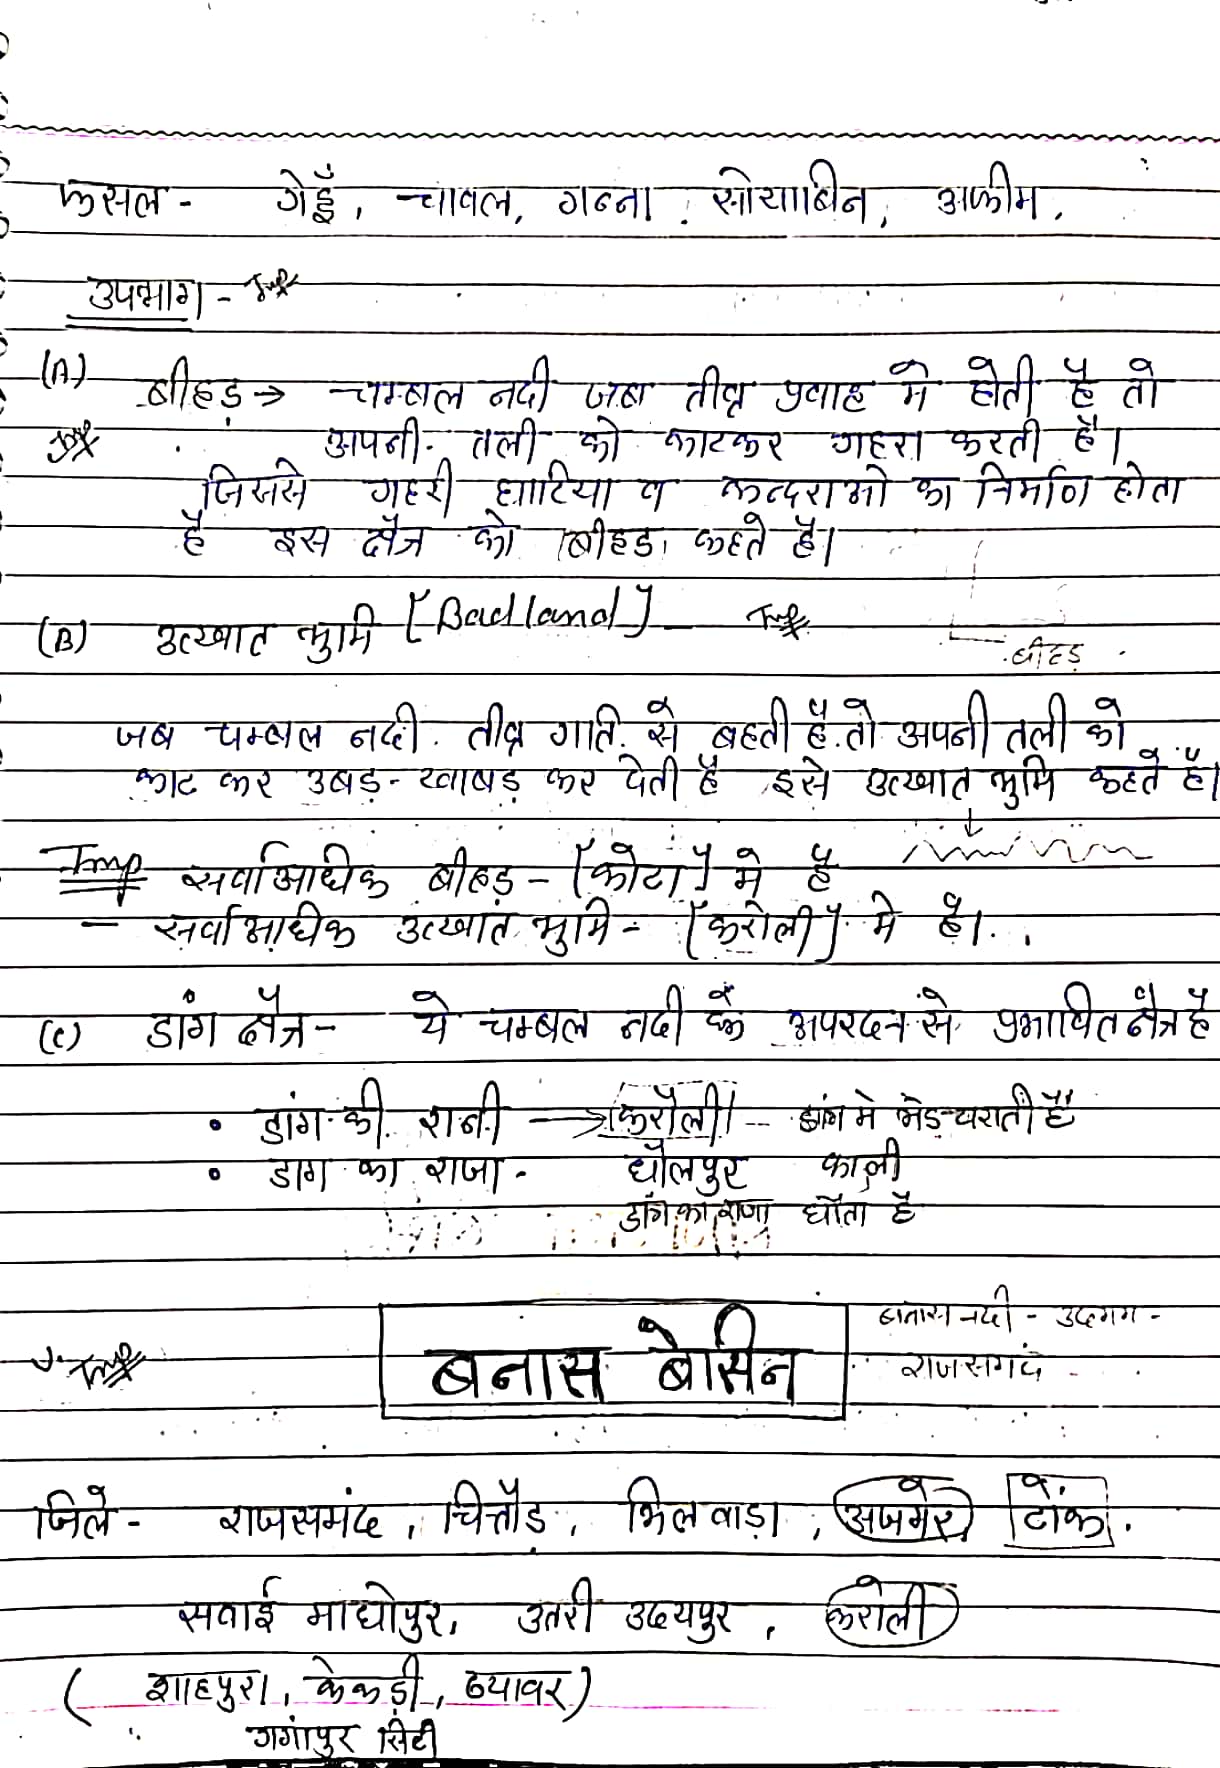 फसल - गेहूँ, चावल, गन्ना, सोयाबिन, अफीम,
उपभाग - Imp
(A) बीहड़ → चम्बल नदी जब तीव्र प्रवाह मे होती है तो
Imp अपनी तली को काटकर गहरा करती है।
जिससे गहरी घाटिया व कन्दराओ का निर्माण होता
है इस क्षैत्र को बीहड़ कहते है।
(B) उत्खात भुमि [Badland] - Imp
बीहड़
जब चम्बल नदी तीव्र गति से बहती है तो अपनी तली को
काट कर उबड़-खाबड़ कर देती है इसे उत्खात भुमि कहते है।
Imp सर्वाअधिक बीहड़ - [कोटा] मे है
- सर्वाअधिक उत्खात भुमि - [करोली] मे है।
(C) डांग क्षैत्र - ये चम्बल नदी के अपरदन से प्रभावित क्षैत्र है
• डांग की रानी → करौली - डांग मे भेड चराती है
• डाग का राजा - धौलपुर काली
डांग का राजा धौता है
V. Imp बनास बेसिन
बानास नदी - उदगम -
राजसमंद
जिले - राजसमंद, चित्तौड़, भिलवाड़ा, अजमेर टोंक.
सवाई माधोपुर, उतरी उदयपुर, करोली
(शाहपुरा, केकड़ी, ब्यावर)
गगांपुर सिटी